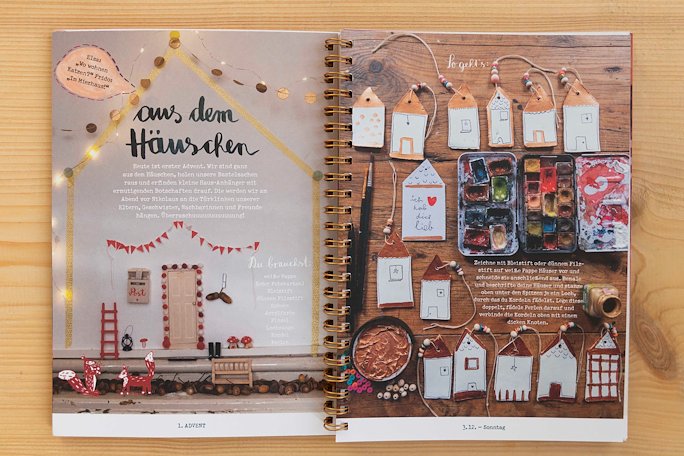 Elmar:
„Wo wohnen
Katzen?“ Fridos
„Im Mierhaus!“
aus dem
Häuschen
Heute ist erster Advent. Wir sind ganz
aus dem Häuschen, holen unsere Bastelsachen
raus und erfinden kleine Haus-Anhänger mit
ermutigenden Botschaften drauf. Die werden wir am
Abend vor Nikolaus an die Türklinken unserer
Eltern, Geschwister, Nachbarinnen und Freunde
hängen. Überraschuuuuuuuuuung!
Du brauchst:
weiße Pappe
Bleistift
dünnen Filzstift
Schere
Acrylfarbe
Pinsel
Kordel
Perlen
Post
1. ADVENT
So geht's:
Ich
hab
dich
lieb
Zeichne mit Bleistift oder dünnem Filz-
stift auf weiße Pappe Häuser vor und
schneide sie anschließend aus. Bemale
und beschrifte deine Häuser und stanze
oben unter den Spitzen je ein Loch,
durch das du Kordeln fädelst. Lege diese
doppelt, fädele Perlen darauf und
verbinde die Kordeln oben mit einem
dicken Knoten.
3.12. – Sonntag